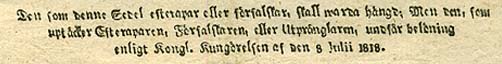 Den som denne Sedel efterapar eller förfalskar, skall warda hängd; Men den, som
uptäcker Efteraparen, Förfalskaren, eller Utprånglaren, undfår belöning
enligt Kongl. Kungörelsen af den 8 Julii 1818.